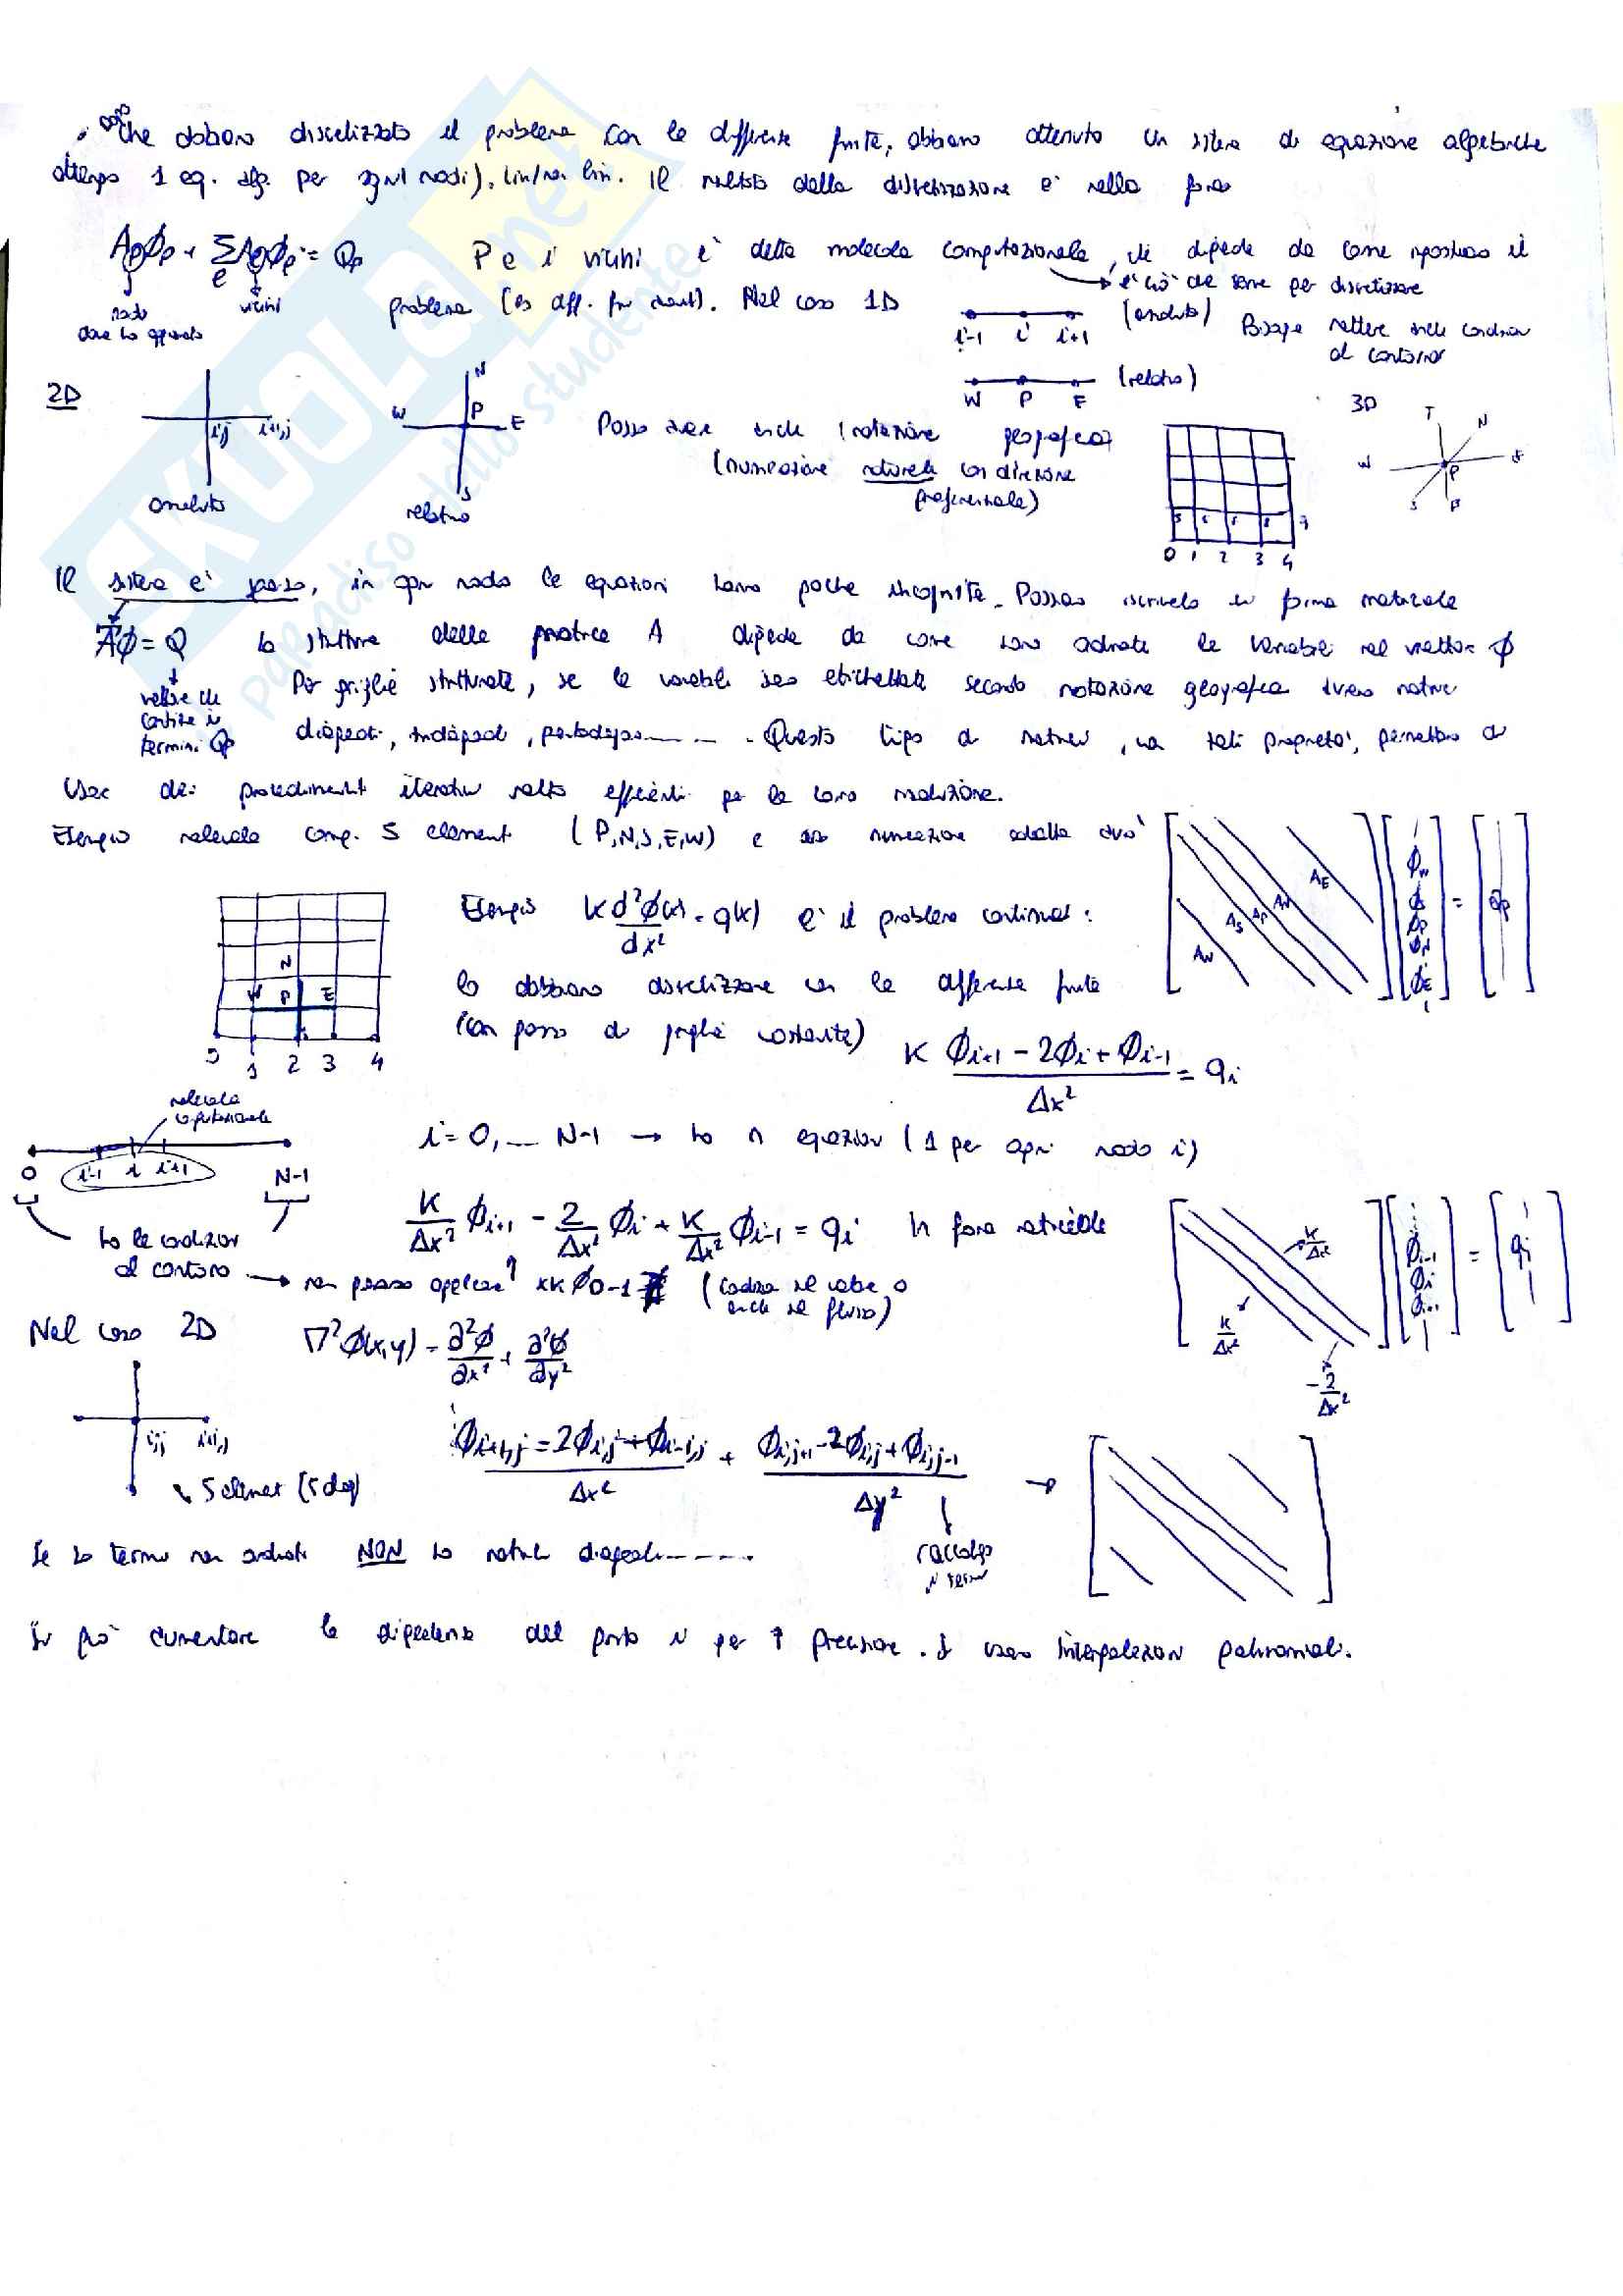 che abbiamo discretizzato il problema con le differenze finite, abbiamo ottenuto un sistema di equazione algebriche
ottengo 1 eq. alg. per ogni nodi), lin/non lin. Il risultato della discretizzazione è nella forma
A_P ϕ_P + Σ_e A_e ϕ_e = Q_P
nodo
dove ho applicato
vicini
P e i vicini è detta molecola computazionale, che dipende da come impostiamo il
è ciò che serve per discretizzare
problema (es diff. fin cent). Nel caso 1D
i-1 i i+1 (assoluto)
Bisogna mettere anche condizioni
al contorno
W P E (relativo)
2D
i,j i+1,j
assoluto
N W P E S
relativo
Posso usare anche notazione geografica
(numerazione naturale con direzione
preferenziale)
0 1 2 3 4
3D
T N W P E S B
Il sistema è sparso, in ogni nodo le equazioni hanno poche incognite. Possiamo scriverlo in forma matriciale
Aϕ = Q la struttura della matrice A dipende da come sono ordinate le variabili nel vettore ϕ
vettore che
contiene i
termini Q_P
Per griglie strutturate, se le variabili sono etichettate secondo notazione geografica avremo matrici
diagonali, tridiagonali, pentadiagonali...... . Questo tipo di matrici, con tali proprietà, permettono di
usare dei procedimenti iterativi molto efficienti per la loro risoluzione.
Esempio molecola comp. 5 elementi (P,N,S,E,W) e una numerazione adatta avrò
A_W A_S A_P A_N A_E
ϕ_W
ϕ_P
ϕ_N
ϕ_E
= Q_P
N
W P E
1 2 3 4
Esempio K d²ϕ(x)/dx² = q(x) è il problema continuo:
lo dobbiamo discretizzare con le differenze finite
(con passo di griglia costante) K (ϕ_{i+1} - 2ϕ_i + ϕ_{i-1})/Δx² = q_i
molecola
computazionale
0 i-1 i i+1 N-1
i = 0, .... N-1 → ho n equazioni (1 per ogni nodo i)
K/Δx² ϕ_{i+1} - 2/Δx² ϕ_i + K/Δx² ϕ_{i-1} = q_i In forma matriciale
K/Δx²
K/Δx²
-2/Δx²
ϕ_{i-1}
ϕ_i
= q_i
ho le condizioni
al contorno → non posso applicare xk ϕ0-1 (condizione sul valore o
anche sul flusso)
Nel caso 2D ∇²ϕ(x,y) = ∂²ϕ/∂x² + ∂²ϕ/∂y²
i,j i+1,j
5 elementi (5 diag)
(ϕ_{i+1,j} - 2ϕ_{i,j} + ϕ_{i-1,j})/Δx² + (ϕ_{i,j+1} - 2ϕ_{i,j} + ϕ_{i,j-1})/Δy² →
raccolgo
i termini
Se ho termini non ordinati NON ho matrici diagonali.......
Si può aumentare la dipendenza del punto i per ↑ precisione. Si usano interpolazioni polinomiali.
SKUOLA.net
paradiso dello studente